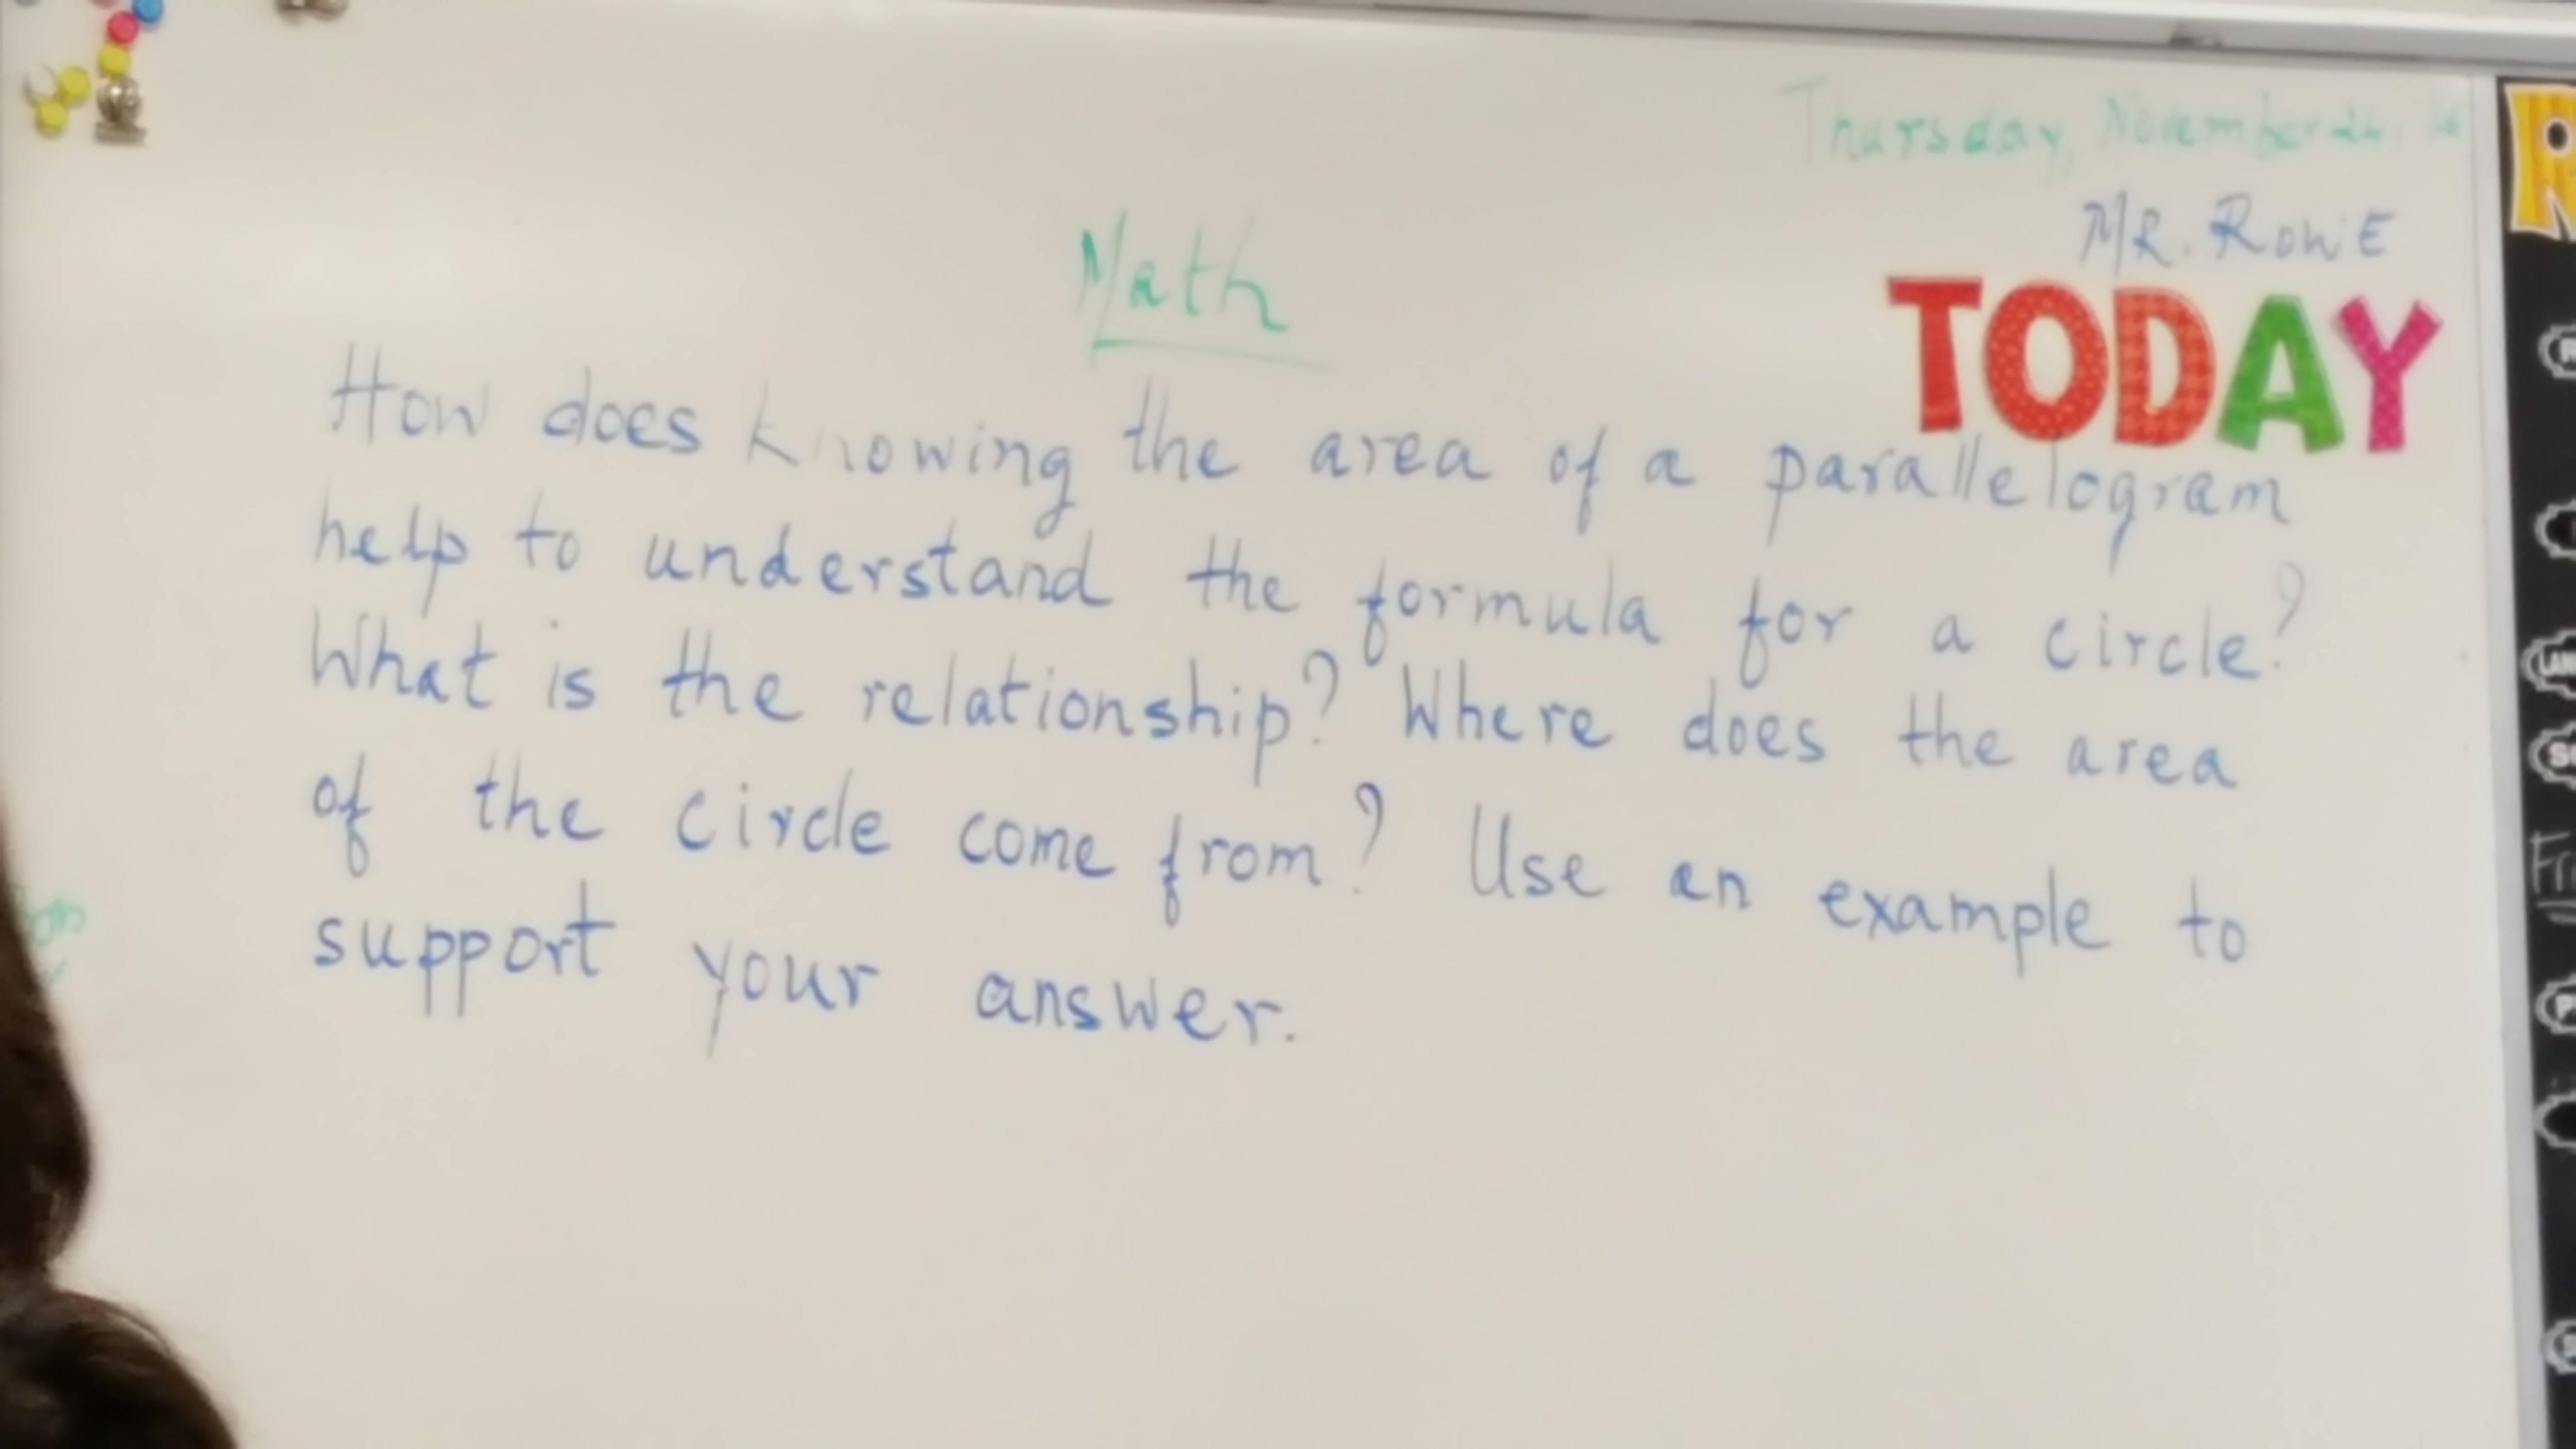 Thursday, November
MR. ROWE
Math
TODAY
How does knowing the area of a parallelogram
help to understand the formula for a circle?
What is the relationship? Where does the area
of the circle come from? Use an example to
support your answer.